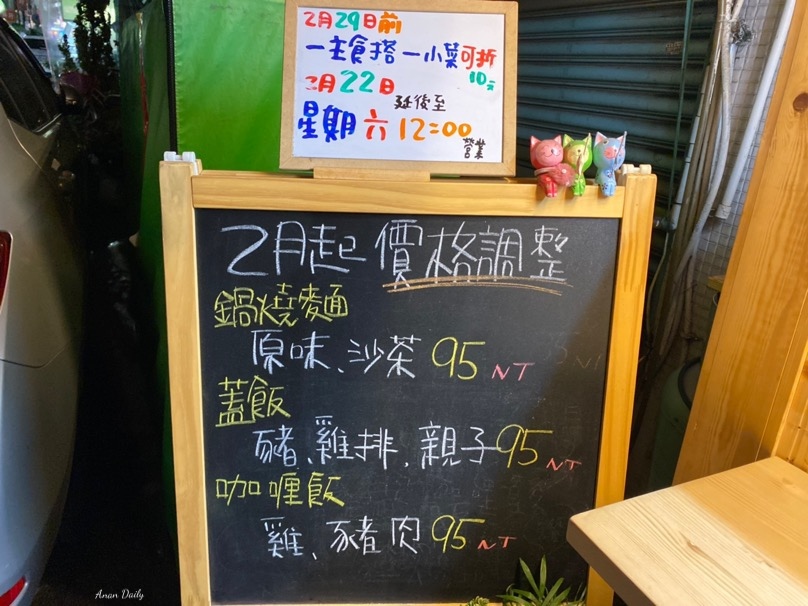 2月29日前
一主食搭一小菜可折
10元
2月22日
延後至
星期六12:00
營業
2月起價格調整
鍋燒麥面
原味、沙茶95NT
蓋飯
豬、雞排、親子95NT
咖喱飯
雞、豬肉95NT
Anan Daily